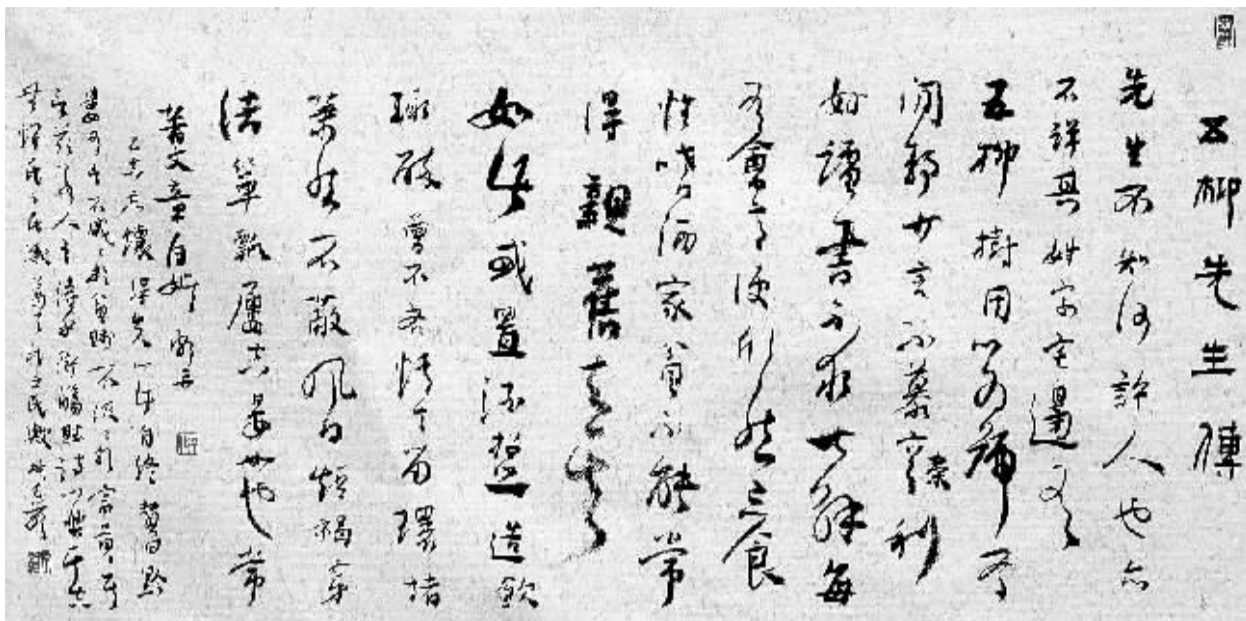 五柳先生傳
先生不知何許人也亦
不詳其姓字宅邊有
五柳樹因以為號焉
閑靜少言不慕榮利
好讀書不求甚解每
有會意便欣然忘食
性嗜酒家貧不能常
得親舊知其
如此或置酒招之造飲
輒醉曾不吝情去留環堵
蕭然不蔽風日短褐穿
結簞瓢屢空晏如也常
著文章自娛頗示
己志忘懷得失以此自終贊曰黔
婁有言不戚戚於貧賤不汲汲於富貴其
言茲若人之儔乎銜觴賦詩以樂其志
無懷氏之民歟葛天氏之民歟